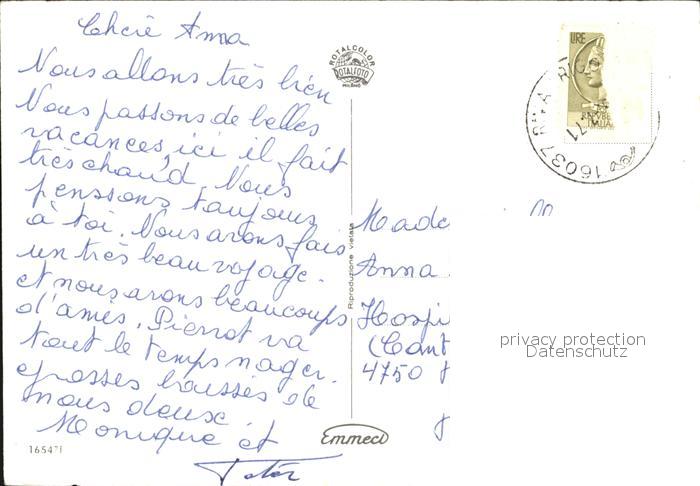 Chére Anna
Nous allons très bien
Nous passons de belles
vacances, ici il fait
très chaud. Nous
penssons toujours
à toi. Nous avons fais
un très beau voyage.
et nous avons beaucoups
d'amis. Pierrot va
tout le temps nager.
grosses bausses de
nous deuse
Monique et
Peter
165471
ROTALCOLOR
ROTALFOTO
MILANO
Riproduzione vietata
Emmeci
LIRE
16037 RIVA
71
Made
Anna
Hospi
(Cant
4750
privacy protection
Datenschutz